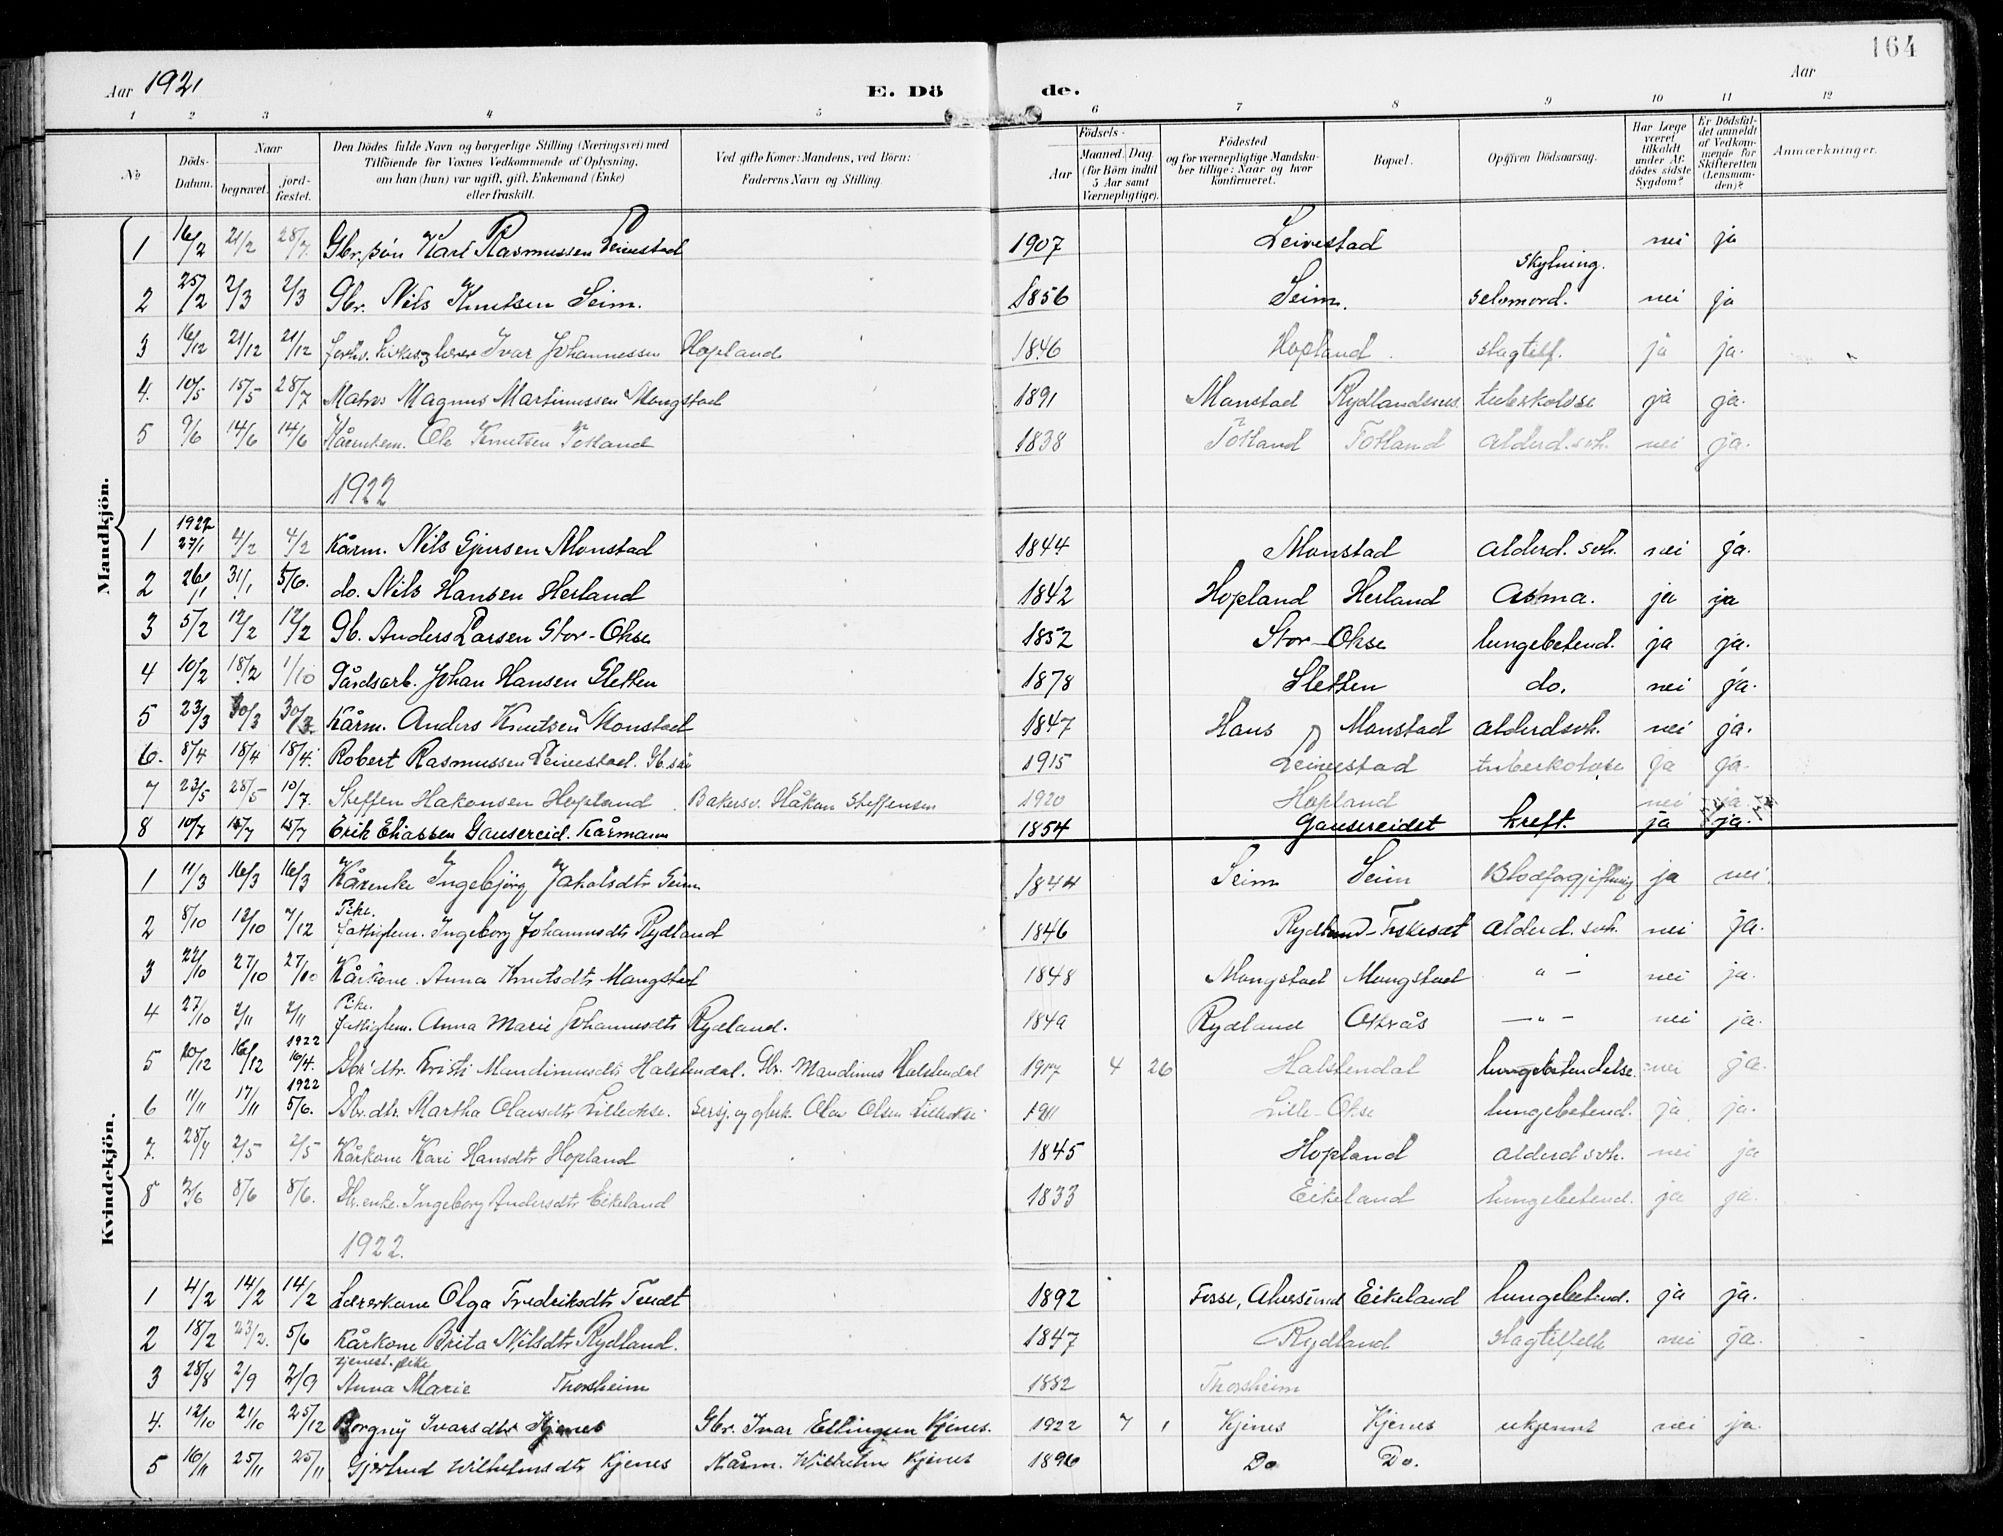 164
Aar 1921 E. Dö de. Aar
1 2 3 4 5 6 7 8 9 10 11 12
No Döds-Datum. Naar begravet. jordfæstet. Den Dödes fulde Navn og borgerlige Stilling (Næringsvei) med Tilföiende for Voxnes Vedkommende af Oplysning, om han (hun) var ugift, gift, Enkemand (Enke) eller fraskilt. Ved gifte Koner: Mandens, ved Börn: Faderens Navn og Stilling. Födsels- Aar Maaned. Dag. (for Börn indtil 5 Aar samt Værnepligtige). Födested og for værnepligtige Mandskaber tillige: Naar og hvor konfirmeret. Bopæl. Opgiven Dödsaarsag. Har Læge været tilkaldt under Afdödes sidste Sygdom? Er Dödsfaldet anmeldt af Vedkommende for Skifteretten (Lensmanden)? Anmærkninger.
Mandkjön.
1 16/2 21/2 28/7. Gbr. sön Karl Rasmussen Leirestad 1907 Leirestad nei ja
2 25/2 2/3 2/3 Gbr. Nils Knutsen Seim. 1856 Seim. skytning. selvmord. nei ja
3 16/12 21/12 21/12 Ivar Johannessen Hopland 1846 Hopland slagtilf. ja ja.
4. 10/5 15/5 28/7 Matros Magnus Martinussen Mongstad 1891 Monstad Rydlandsnes. tuberkolose ja ja.
5 9/6 14/6 14/6 Kårmken. Ole Knutsen Totland 1838 Totland Totland alderd. svh. nei ja.
1922
1 1922 27/1 4/2 4/2 Kårm. Nils Gjersen Monstad 1844 Monstad alderd. svh. nei ja.
2 26/1 31/1 5/6. do. Nils Hansen Herland 1842 Hopland Herland Astma. ja ja
3 5/2 12/2 12/2 Gb. Anders Larsen Stor-Okse 1852 Stor-Okse lungebetend. ja ja.
4 10/2 18/2 1/10 Gårdsarb. Johan Hansen Sletten 1878 Sletten do. nei ja.
5 23/3 30/3 30/3 Kårm. Anders Knutsen Monstad 1847 Haus Monstad alderdsvh. nei ja.
6. 8/4 18/4 18/4. Robert Rasmussen Leirestad. Gb. sön 1915 Leirestad tuberkolose ja ja.
7 23/5 28/5 10/7. Steffen Hakonsen Hopland Bakersv. Håkon Steffensen 1920 Hopland nei ja.
8 10/7 15/7 15/7 Erik Eliassen Gausereid. Kårmann 1854 Gausereidet kreft. ja ja.
Kvindekjön.
1 11/3 16/3 16/3 Kårenke Ingebjörg Jakobsdtr Seim 1844 Seim Seim Blodforgiftning ja nei.
2 8/10 12/10 7/12 Pike. fattiglem. Ingeborg Johannesdtr Rydland 1846 Rydland-Fiskeset alderd. svh. nei ja.
3 22/10 27/10 27/10 Kårkone. Anna Knutsdtr Mongstad 1848 Mongstad Mongstad " - nei ja.
4 27/10 2/11 2/11 Pike. fattiglem. Anna Marie Johannesdtr Rydland. 1849 Rydland Askvås - " - nei ja.
5 10/12 16/12 1922 16/4. Gbr dtr. Kristi Mandinusdtr Halstendal. Gbr. Mandinus Halstendal 1917 4 26 Halstendal lungebetendelse. nei ja.
6 11/11 17/11 1922 5/6. Gbr. dtr. Martha Olausdtr Lilleokse. Sersj. og gbrk. Olav Olsen Lilleokse 1911 Lille-Okse lungebetend. ja. ja.
7. 28/4 2/5 2/5 Kårkone Kari Hansdtr Hopland 1845 Hopland alderd svh. nei ja
8 2/6 8/6 8/6. Gbr. enke. Ingeborg Andersdtr Eikeland 1833 Eikeland lungebetend. ja ja.
1922.
1 4/2 14/2 14/2 Lærerkone Olga Fredriksdtr Tendt 1892 Fosse, Alversund Eikeland lungebetend. ja ja.
2 18/2 23/2. 5/6 Kårkone Brita Nilsdtr Rydland. 1847 Rydland slagtilfelle nei ja.
3 28/8 2/9 2/9 tjenest. pike Anna Marie Thorsheim 1882 Thorsheim
4. 12/10 21/10 25/12 Borgny Ivarsdtr Kjenes Gbr. Ivar Ellingsen Kjenes. 1922 7 1 Kjenes Kjenes ukjennt nei ja.
5 16/11 25/11 25/11 Gjertrud Wilhelmsdtr Kjenes Kårm. Wilhelm Kjenes 1896 Do Do.